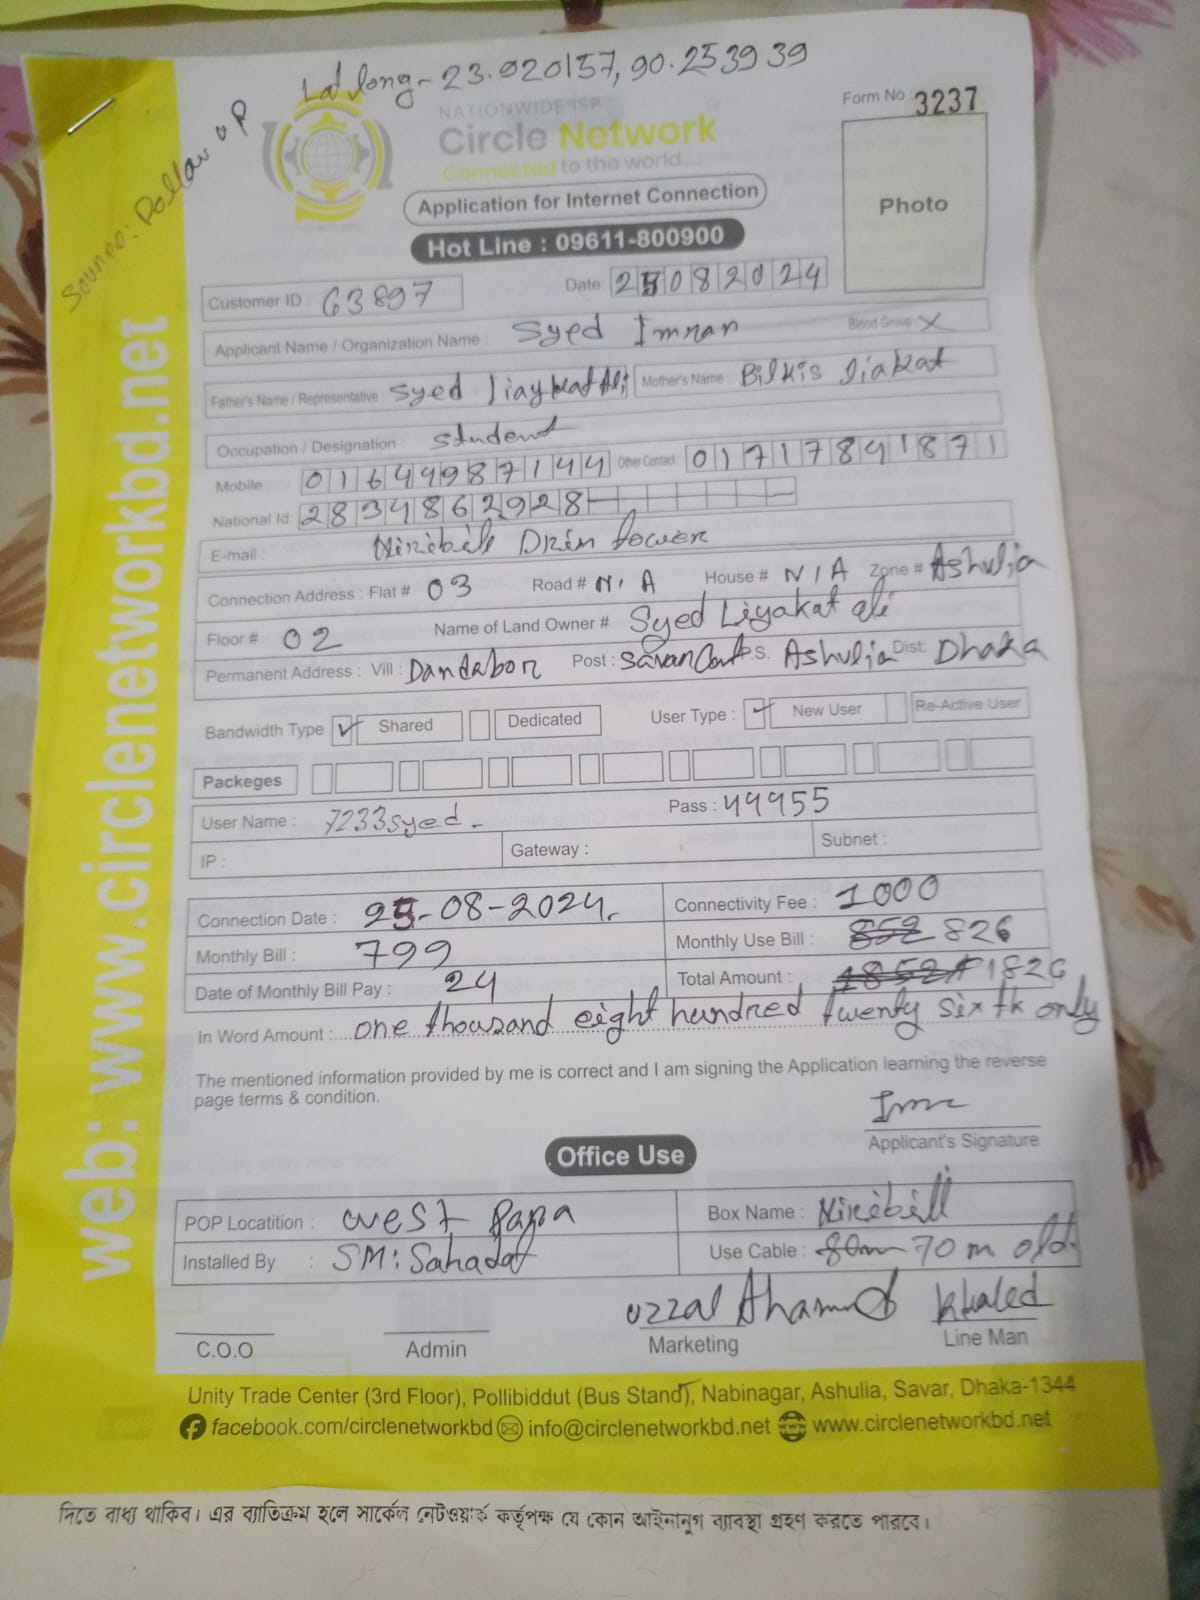 Lat long - 23.920157, 90.253939
NATIONWIDE ISP
Circle Network
Connected to the world
Form No 3237
Photo
Application for Internet Connection
Hot Line : 09611-800900
Customer ID : 63897 Date: 25082024
Applicant Name / Organization Name : Syed Imran Blood Group X
Father's Name / Representative : Syed liaykat Ali Mother's Name : Bilkis liakat
Occupation / Designation : student
Mobile : 01649987144 Other Contact : 01717841871
National Id: 2834862928
E-mail : Niribili Drim tower
Connection Address : Flat # 03 Road # N/A House # N/A Zone # Ashulia
Floor # 02 Name of Land Owner # Syed Liyakat ali
Permanent Address : Vill : Dandabor Post : Savar Cant P.S. Ashulia Dist: Dhaka
Bandwidth Type Shared Dedicated User Type : New User Re-Active User
Packeges
User Name : 7233syed Pass : 49955
IP : Gateway : Subnet :
Connection Date : 25-08-2024. Connectivity Fee : 1000
Monthly Bill : 799 Monthly Use Bill : 852 826
Date of Monthly Bill Pay : 24 Total Amount : 1852 1826
In Word Amount : one thousand eight hundred twenty six tk only
The mentioned information provided by me is correct and I am signing the Application learning the reverse
page terms & condition.
Imr
Applicant's Signature
Office Use
POP Locatition : west Papa Box Name : Niribili
Installed By : SM: Sahadat Use Cable : 80m 70 m old.
uzzal Ahamed Khaled
C.O.O Admin Marketing Line Man
Unity Trade Center (3rd Floor), Pollibiddut (Bus Stand), Nabinagar, Ashulia, Savar, Dhaka-1344
facebook.com/circlenetworkbd info@circlenetworkbd.net www.circlenetworkbd.net
দিতে বাধ্য থাকিব। এর ব্যাতিক্রম হলে সার্কেল নেটওয়ার্ক কর্তৃপক্ষ যে কোন আইনানুগ ব্যাবস্থা গ্রহণ করতে পারবে।
web: www.circlenetworkbd.net